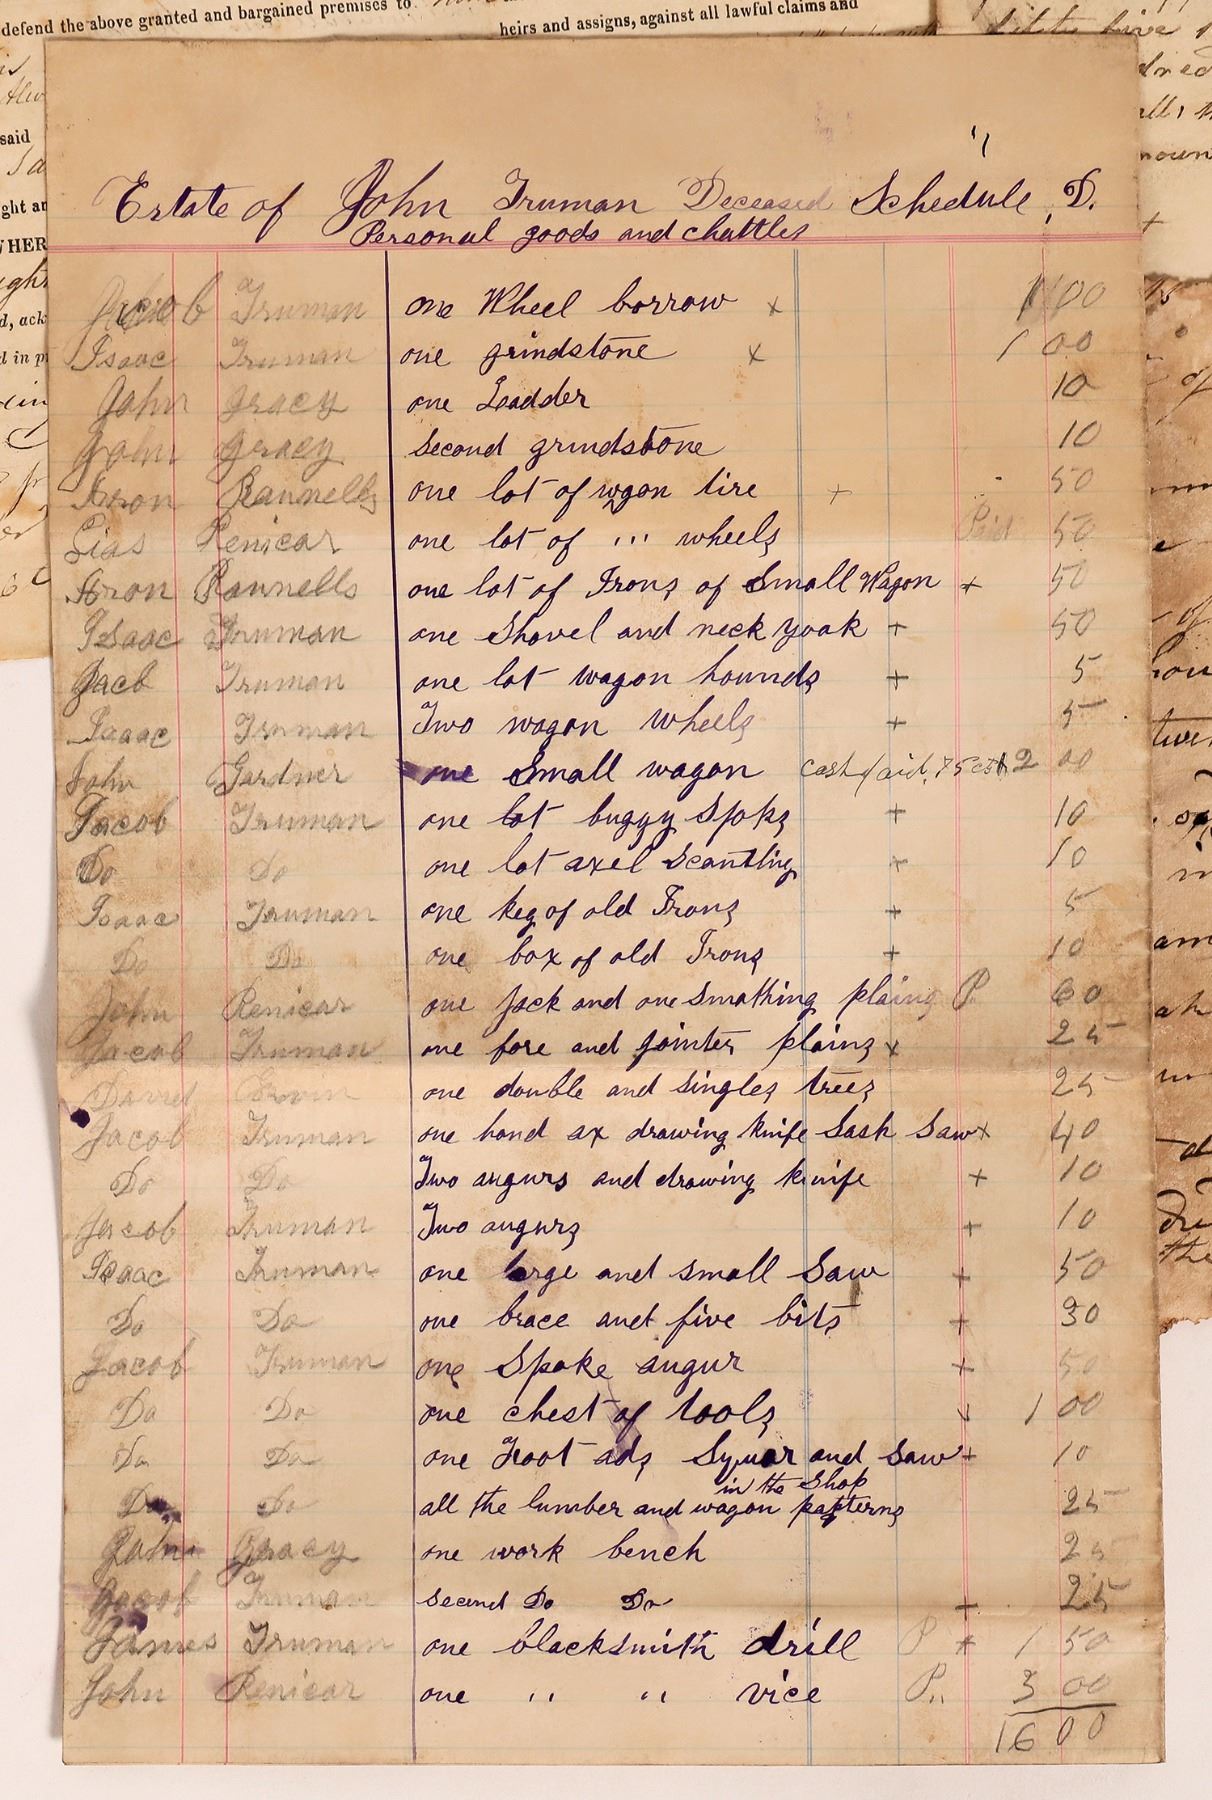 defend the above granted and bargained premises to
heirs and assigns, against all lawful claims and
said
Estate of John Truman Deceased Schedule, D.
Personal goods and chattles
Jacob Truman one Wheel borrow x 1 00
Isaac Truman one grindstone x 1 00
John Gracy one Ladder 10
John Gracy second grindstone 10
Aron Rannells one lot of wgon tire + 50
Lias Renicar one lot of ,,, wheels Paid 50
Aron Rannells one lot of Irons of Small Wagon + 50
Isaac Truman one Shovel and neck yoak + 50
Jacb Truman one lot wagon hounds + 5
Isaac Truman Two wagon wheels + 5
John Gardner one Small wagon cash paid, 75 cts 2 00
Jacob Truman one lot buggy Spoks + 10
Do Do one lot axel Scantling + 10
Isaac Truman one keg of old Irons + 5
Do Do one box of old Irons + 10
John Renicar one Jack and one Smathing plains P. 60
Jacob Truman one fore and jointer plains x 25
David one double and singles trees 25
Jacob Truman one hand ax drawing knife Sash Saw x 40
Do Do Two augurs and drawing knife + 10
Jacob Truman Two augurs + 10
Isaac Truman one large and small Saw + 50
Do Do one brace and five bits + 30
Jacob Truman one Spoke augur + 50
Do Do one chest of tools 1 00
Do Do one Foot adz Squar and Saw + 10
in the Shop
Do Do all the lumber and wagon patterns 25
John Gracy one work bench 25
Jacob Truman second Do Do + 25
James Truman one blacksmith drill P + 1 50
John Renicar one ,, ,, vice P,, 3 00
16 00